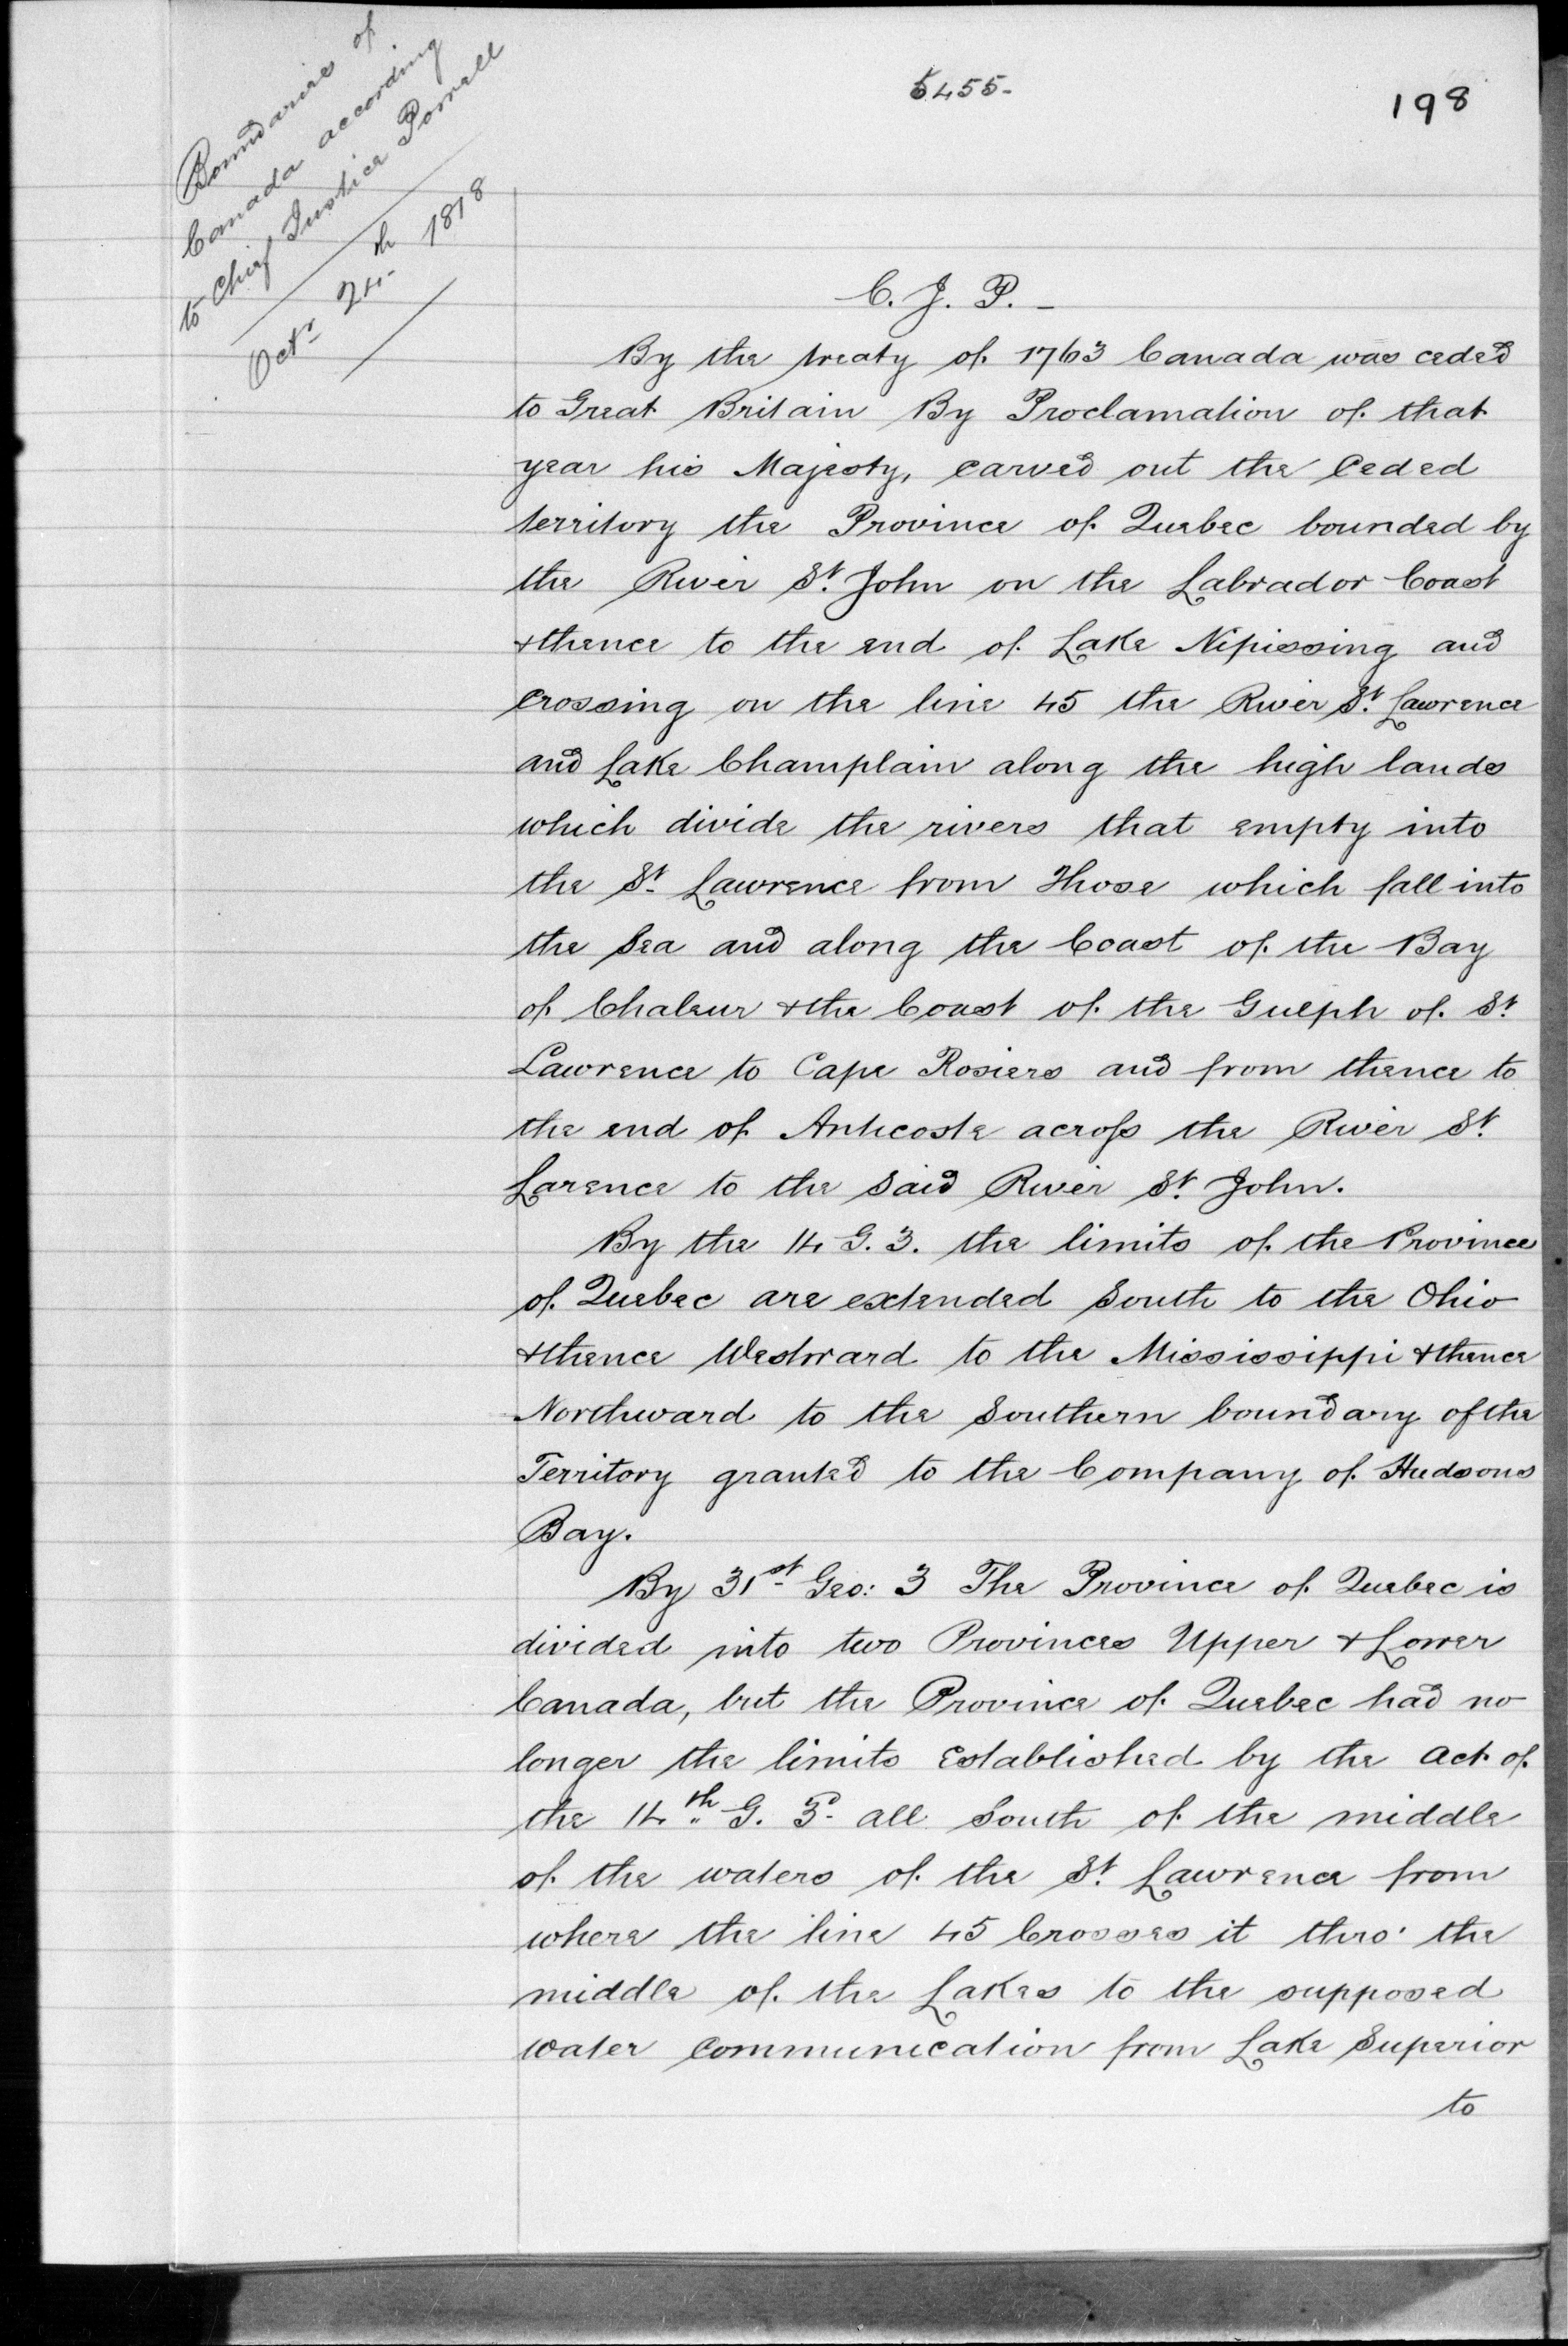 Boundaries of
Canada according
to Chief Justice Powell
Octr 24th 1818
5455-
198
C. J. P. -
By the treaty of 1763 Canada was ceded
to Great Britain By Proclamation of that
year his Majesty, carved out the Ceded
territory the Province of Quebec bounded by
the River St. John on the Labrador Coast
& thence to the end of Lake Nipissing and
Crossing on the line 45 the River St. Lawrence
and Lake Champlain along the high lands
which divide the rivers that empty into
the St. Lawrence from Those which fall into
the Sea and along the Coast of the Bay
of Chaleur & the Coast of the Gulph of St.
Lawrence to Cape Rosiers and from thence to
the end of Anticoste across the River St.
Larence to the Said River St. John.
By the 14 G. 3. the limits of the Province
of Quebec are extended South to the Ohio
& thence Westward to the Mississippi & thence
Northward to the Southern boundary of the
Territory granted to the Company of Hudsons
Bay.
By 31st Geo: 3 The Province of Quebec is
divided into two Provinces Upper & Lower
Canada, but the Province of Quebec had no
longer the limits Established by the act of
the 14th G. 3d all South of the middle
of the waters of the St. Lawrence from
where the line 45 Crosses it thro' the
middle of the Lakes to the supposed
water Communication from Lake Superior
to